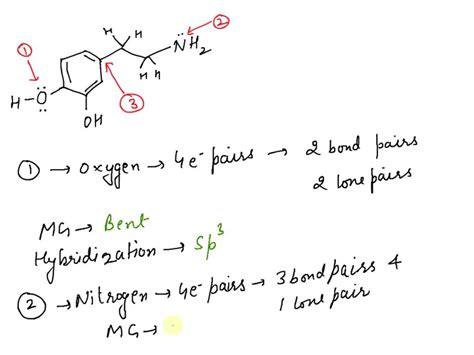 ①
②
H H
N̈H₂
H H
③
H-Ö:
OH
① → Oxygen → 4e⁻ pairs → 2 bond pairs
2 lone pairs
MG → Bent
Hybridization → Sp³
② → Nitrogen → 4e⁻ pairs → 3 bond pairs &
1 lone pair
MG →